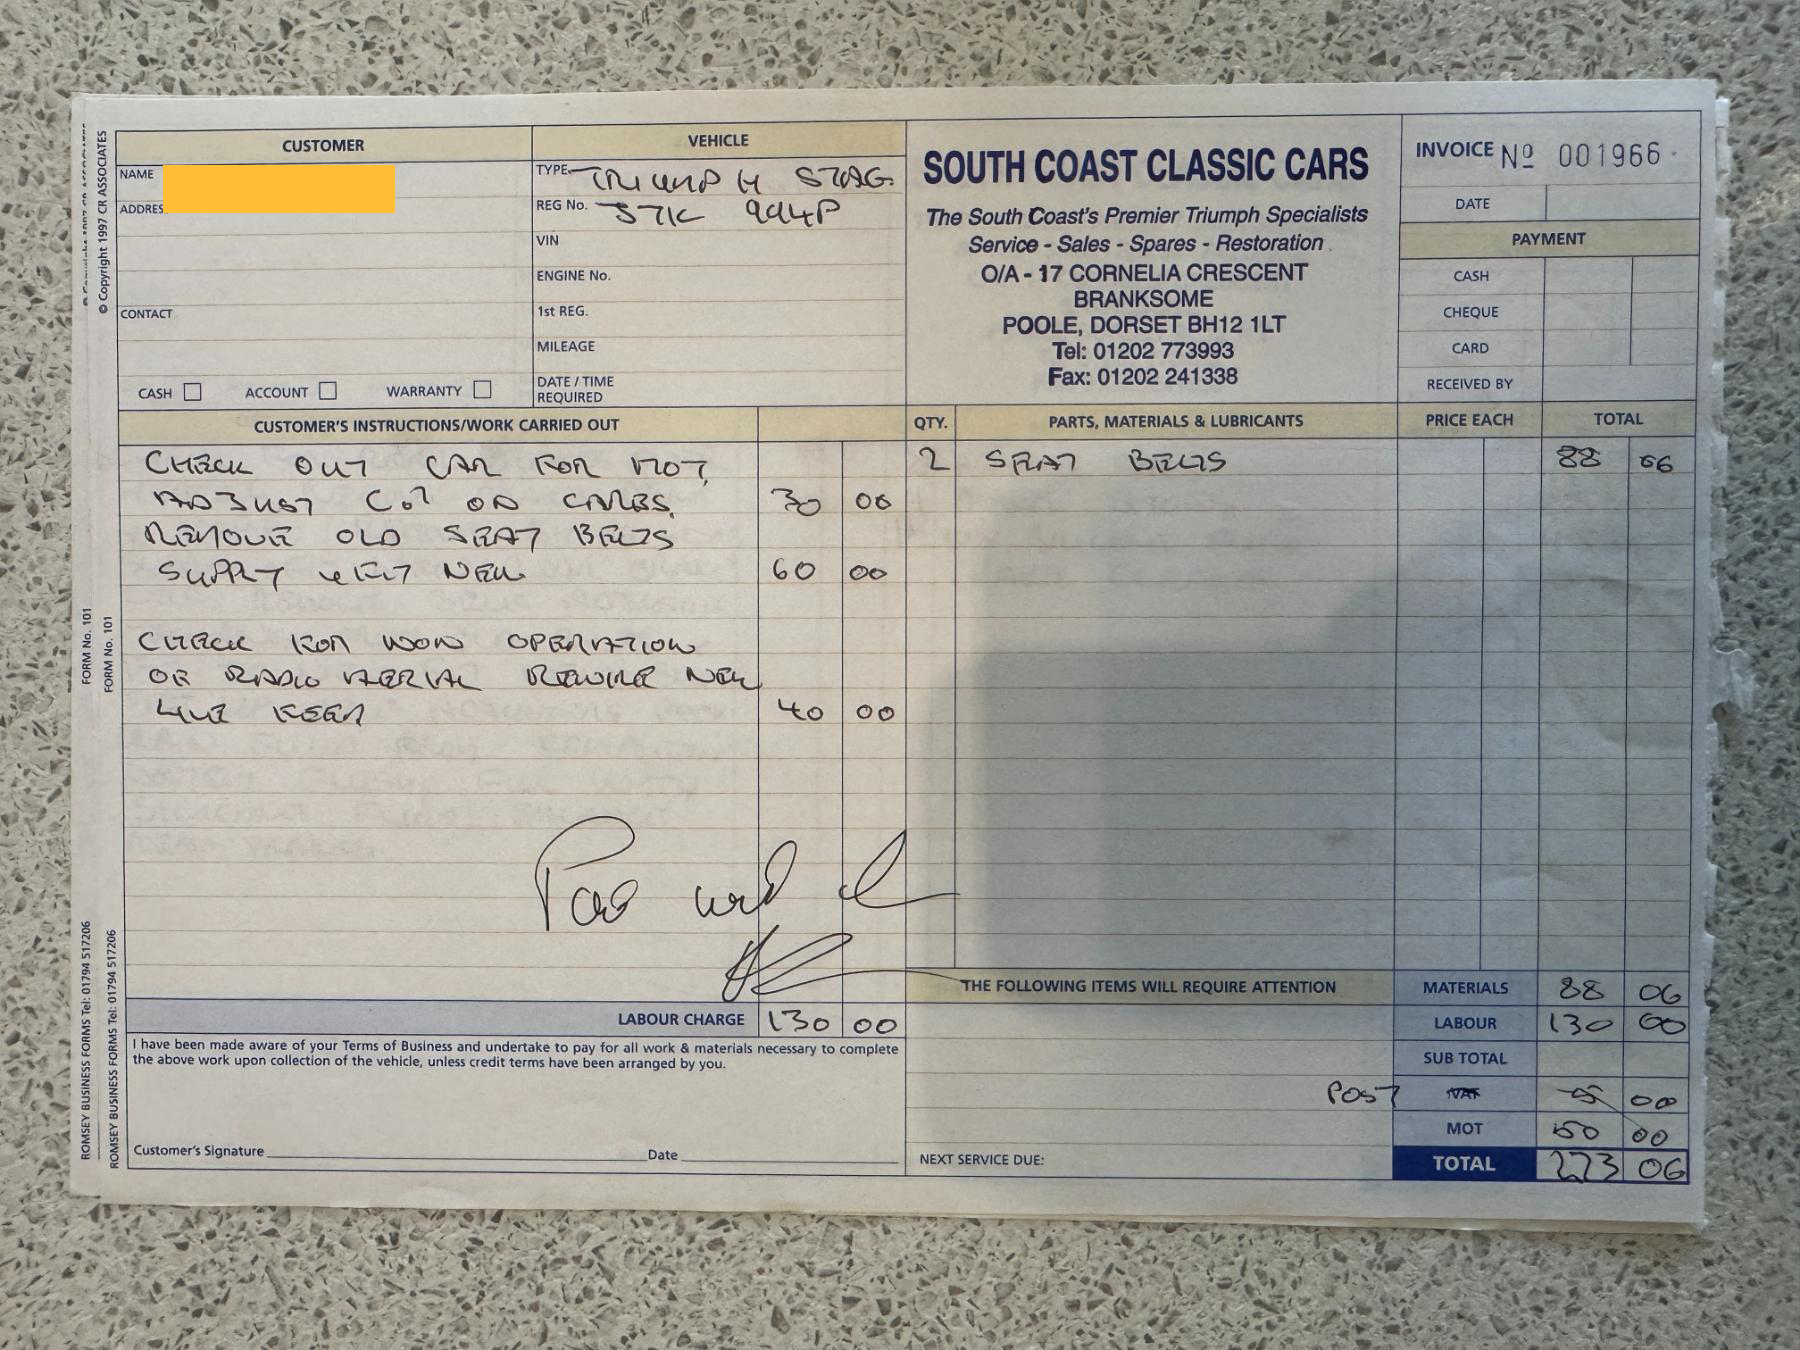 CUSTOMER
NAME
ADDRES
CONTACT
CASH ACCOUNT WARRANTY
VEHICLE
TYPE TRIUMPH STAG.
REG No. 994P
VIN
ENGINE No.
1st REG.
MILEAGE
DATE / TIME
REQUIRED
SOUTH COAST CLASSIC CARS
The South Coast's Premier Triumph Specialists
Service - Sales - Spares - Restoration
O/A - 17 CORNELIA CRESCENT
BRANKSOME
POOLE, DORSET BH12 1LT
Tel: 01202 773993
Fax: 01202 241338
INVOICE No 001966
DATE
PAYMENT
CASH
CHEQUE
CARD
RECEIVED BY
CUSTOMER'S INSTRUCTIONS/WORK CARRIED OUT
CHECK OUT CAR FOR MOT,
ADJUST CO2 ON CARBS, 30 00
REMOVE OLD SEAT BELTS
SUPPLY & FIT NEW 60 00
CHECK FOR NON OPERATION
OF RADIO AERIAL REWIRE NEW
LIVE FEED 40 00
QTY. PARTS, MATERIALS & LUBRICANTS PRICE EACH TOTAL
2 SEAT BELTS 88 06
Paid
LABOUR CHARGE 130 00
I have been made aware of your Terms of Business and undertake to pay for all work & materials necessary to complete
the above work upon collection of the vehicle, unless credit terms have been arranged by you.
Customer's Signature Date
THE FOLLOWING ITEMS WILL REQUIRE ATTENTION
NEXT SERVICE DUE:
MATERIALS 88 06
LABOUR 130 00
SUB TOTAL
POST VAT 5 00
MOT 50 00
TOTAL 273 06
© Copyright 1997 CR ASSOCIATES
FORM No. 101
FORM No. 101
ROMSEY BUSINESS FORMS Tel: 01794 517206
ROMSEY BUSINESS FORMS Tel: 01794 517206